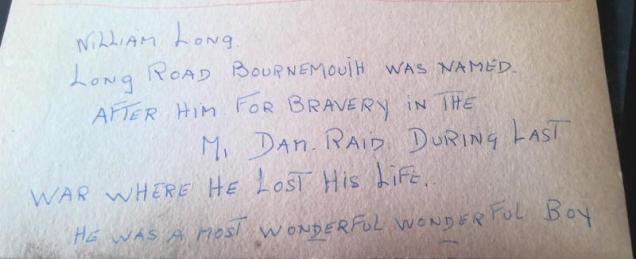 WILLIAM LONG.
LONG ROAD BOURNEMOUTH WAS NAMED.
AFTER HIM FOR BRAVERY IN THE
M, DAM. RAID DURING LAST
WAR WHERE HE LOST HIS LIFE.
HE WAS A MOST WONDERFUL WONDERFUL BOY